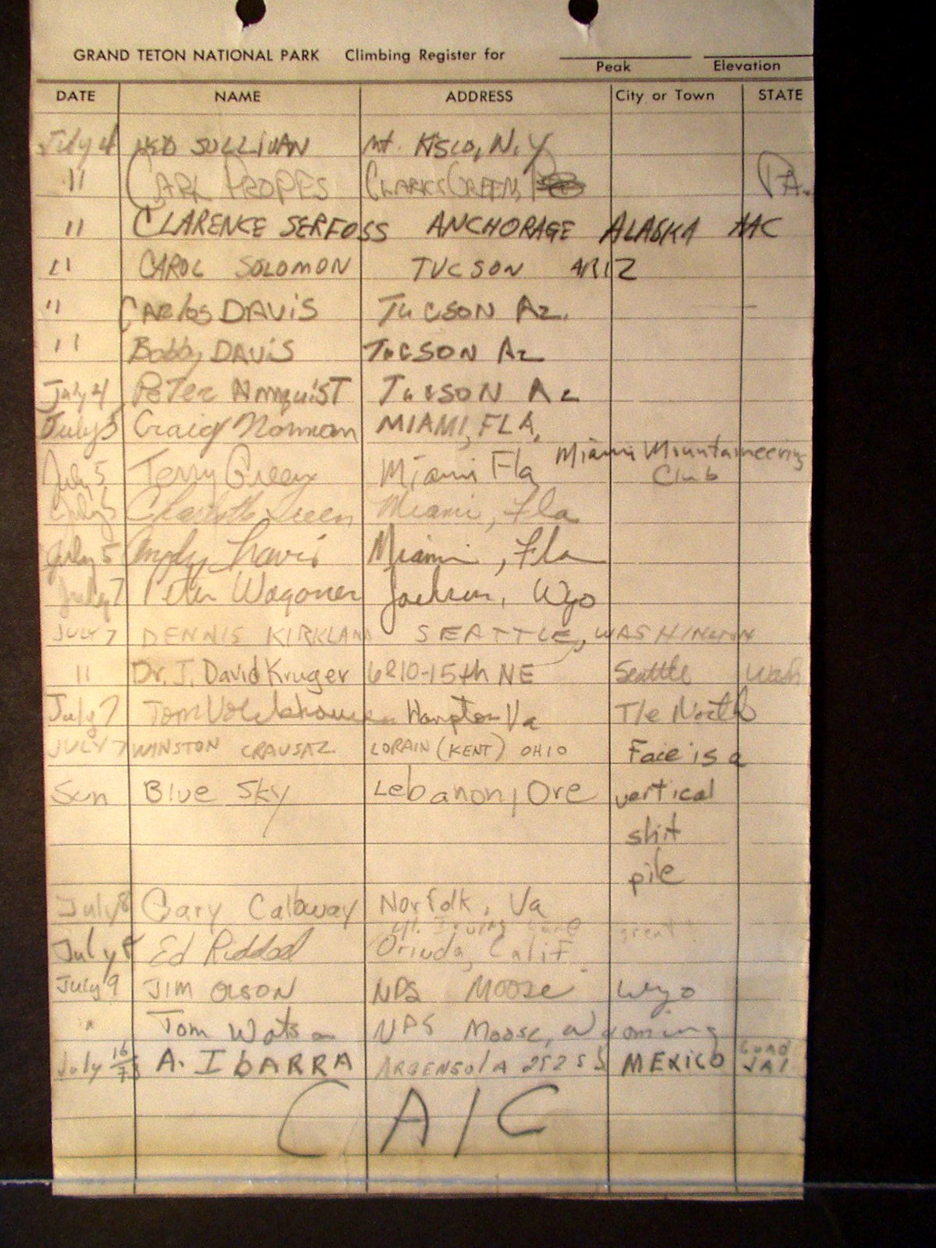 GRAND TETON NATIONAL PARK Climbing Register for
Peak Elevation
DATE NAME ADDRESS City or Town STATE
July 4 SULLIVAN Mt. KISCO, N.Y
11 CARL CLARKS GREEN, PA.
11 CLARENCE SERFOSS ANCHORAGE ALASKA AAC
11 CAROL SOLOMON TUCSON ARIZ
11 CARlos DAViS TuCSON Az.
11 Bobby DAViS TuCSON Az
July 4 PeTer TuCSON Az
July 5 Craig Norman MIAMI, FLA,
July 5 Terry Green Miami Fla Miami Mountaineering
Club
July 5 Charlotte Green Miami, Fla
July 5 Travis Miami, Fla
July 7 Peter Wagoner Jackson, Wyo
JULY 7 DENNIS KIRKLAND SEATTLE, WASHINGTON
11 Dr. J. David Kruger 6810-15th NE Seattle Wash
July 7 Tom Hampton Va The North
JULY 7 WINSTON CRAUSAZ LORAIN (KENT) OHIO Face is a
Sun Blue Sky Lebanon, Ore vertical
shit
pile
July 8 Gary Calaway Norfolk, Va
great!
July 8 Ed Orinda, Calif.
July 9 JIM OLSON NPS Moose Wyo
" Tom Watson NPS Moose, Wyoming
July 16/73 A. IbARRA ARGENSOLA 2525 MEXICO GUAD
JAl
CA/C